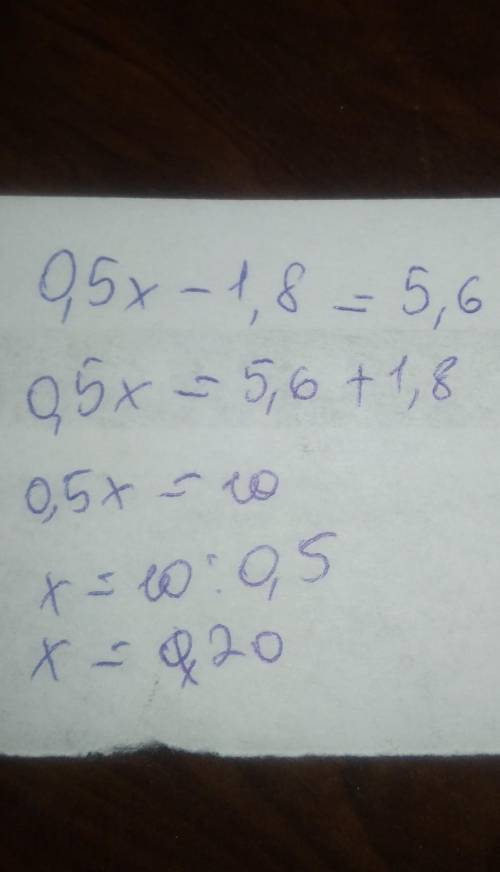 0,5x - 1,8 = 5,6
0,5x = 5,6 + 1,8
0,5x = 10
x = 10 : 0,5
x = 20